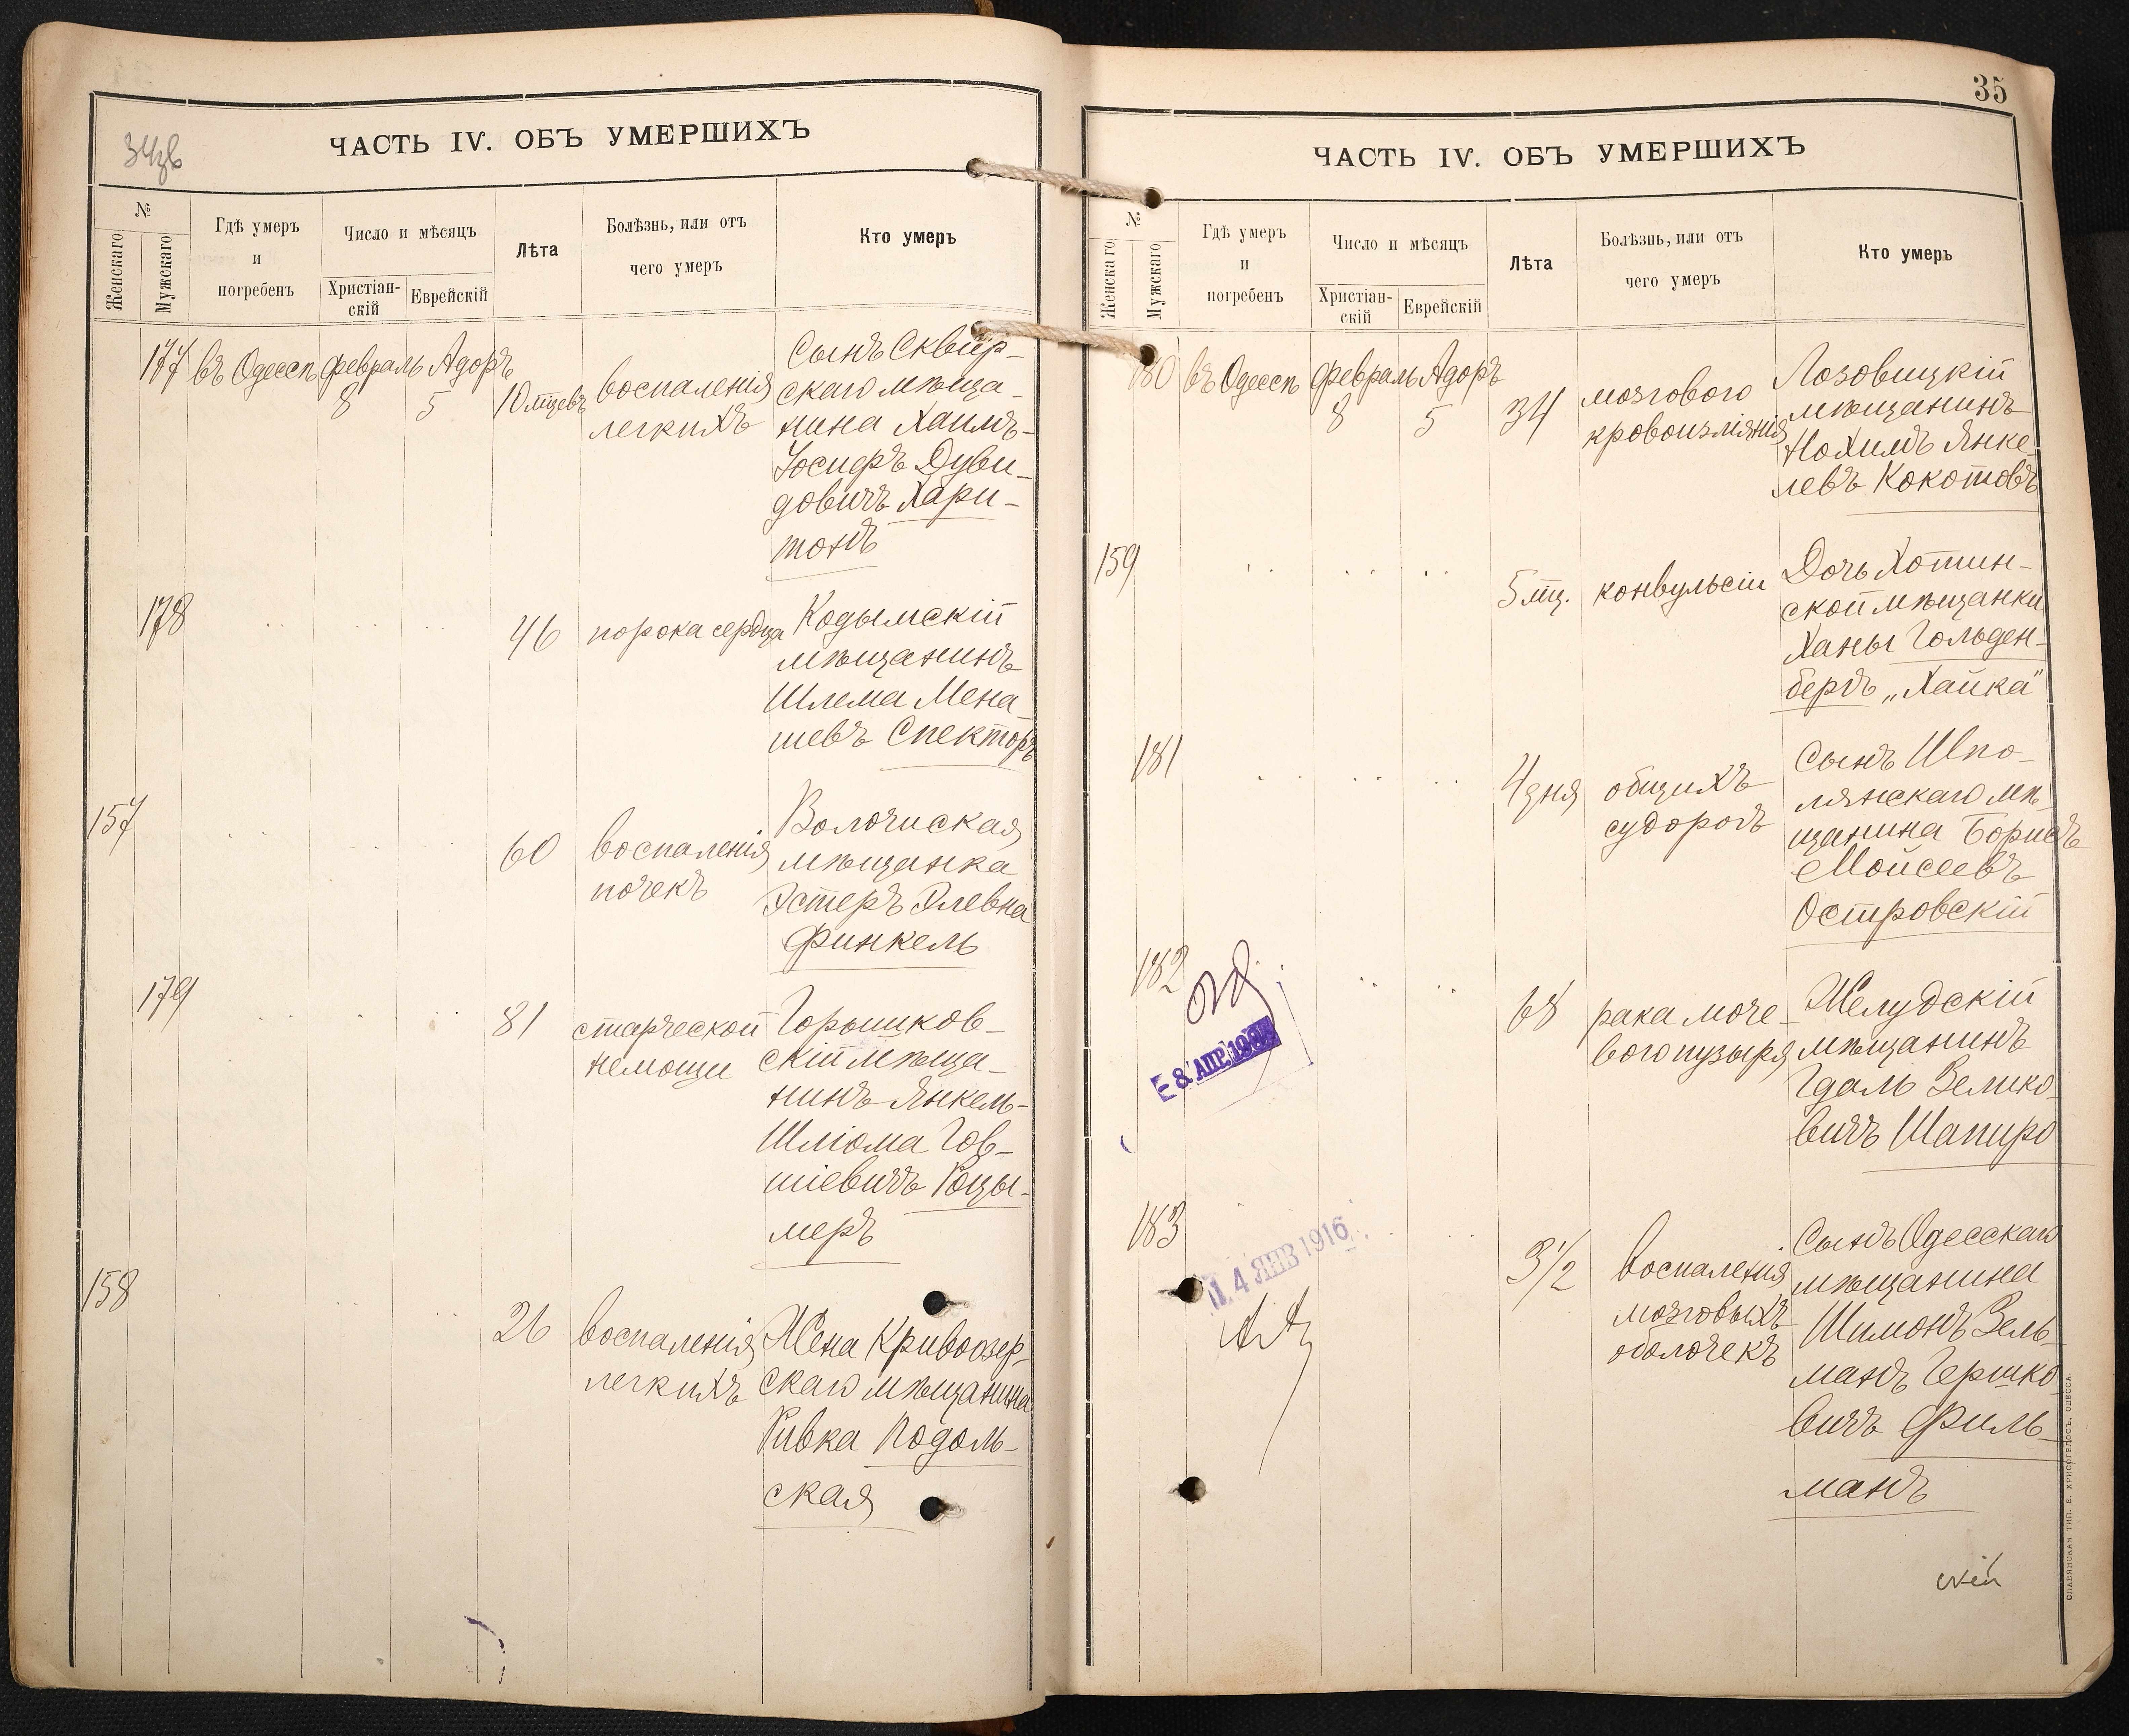 34зв
ЧАСТЬ IV. ОБЪ УМЕРШИХЪ
№
Женскаго
Мужскаго
Гдѣ умеръ
и
погребенъ
Число и мѣсяцъ
Христіан-
скій
Еврейскій
Лѣта
Болѣзнь, или отъ
чего умеръ
Кто умеръ
177 въ Одессѣ февраль Адоръ
8 5 10 мцевъ
воспаленія
легкихъ
Сынъ Сквир-
скаго мѣща-
нина Хаимъ-
Іосифъ Дуви-
довичъ Хари-
тонъ
178
46 порока сердца
Кодымскій
мѣщанинъ
Шлема Мена-
шевъ Спекторъ
157
60 воспаленія
почекъ
Волочиская
мѣщанка
Эстеръ Элевна
Финкель
179
81 старческой
немощи
Горышков-
скій мѣща-
нинъ Янкель-
Шліома Гов-
шіевичъ Роцы-
меръ
158
26 воспаленія
легкихъ
Жена Кривоозер-
скаго мѣщанина
Ривка Подоль-
ская
35
ЧАСТЬ IV. ОБЪ УМЕРШИХЪ
№
Женскаго
Мужскаго
Гдѣ умеръ
и
погребенъ
Число и мѣсяцъ
Христіан-
скій
Еврейскій
Лѣта
Болѣзнь, или отъ
чего умеръ
Кто умеръ
180 въ Одессѣ февраль Адоръ
8 5 34
мозгового
кровоизліянія
Лозовицкій
мѣщанинъ
Нохимъ Янке-
левъ Кокотовъ
159
5 мц. конвульсіи
Дочь Хотин-
ской мѣщанки
Ханы Гольден-
бергъ „Хайка"
181
4 дня общихъ
судорогъ
Сынъ Шпо-
лянскаго мѣ-
щанина Борисъ
Мойсеевъ
Островскій
182
8 АПР. 190
68 рака моче-
вого пузыря
Желудскій
мѣщанинъ
Гдаль Зелико-
вичъ Шапиро
183
14 ЯНВ 1916
3½ воспаленія
мозговыхъ
оболочекъ
Сынъ Одесскаго
мѣщанина
Шимонъ Зель-
манъ Гершко-
вичъ Филь-
манъ
СЛАВЯНСКАЯ ТИП. Е. ХРИСОГЕЛОСЪ, ОДЕССА.